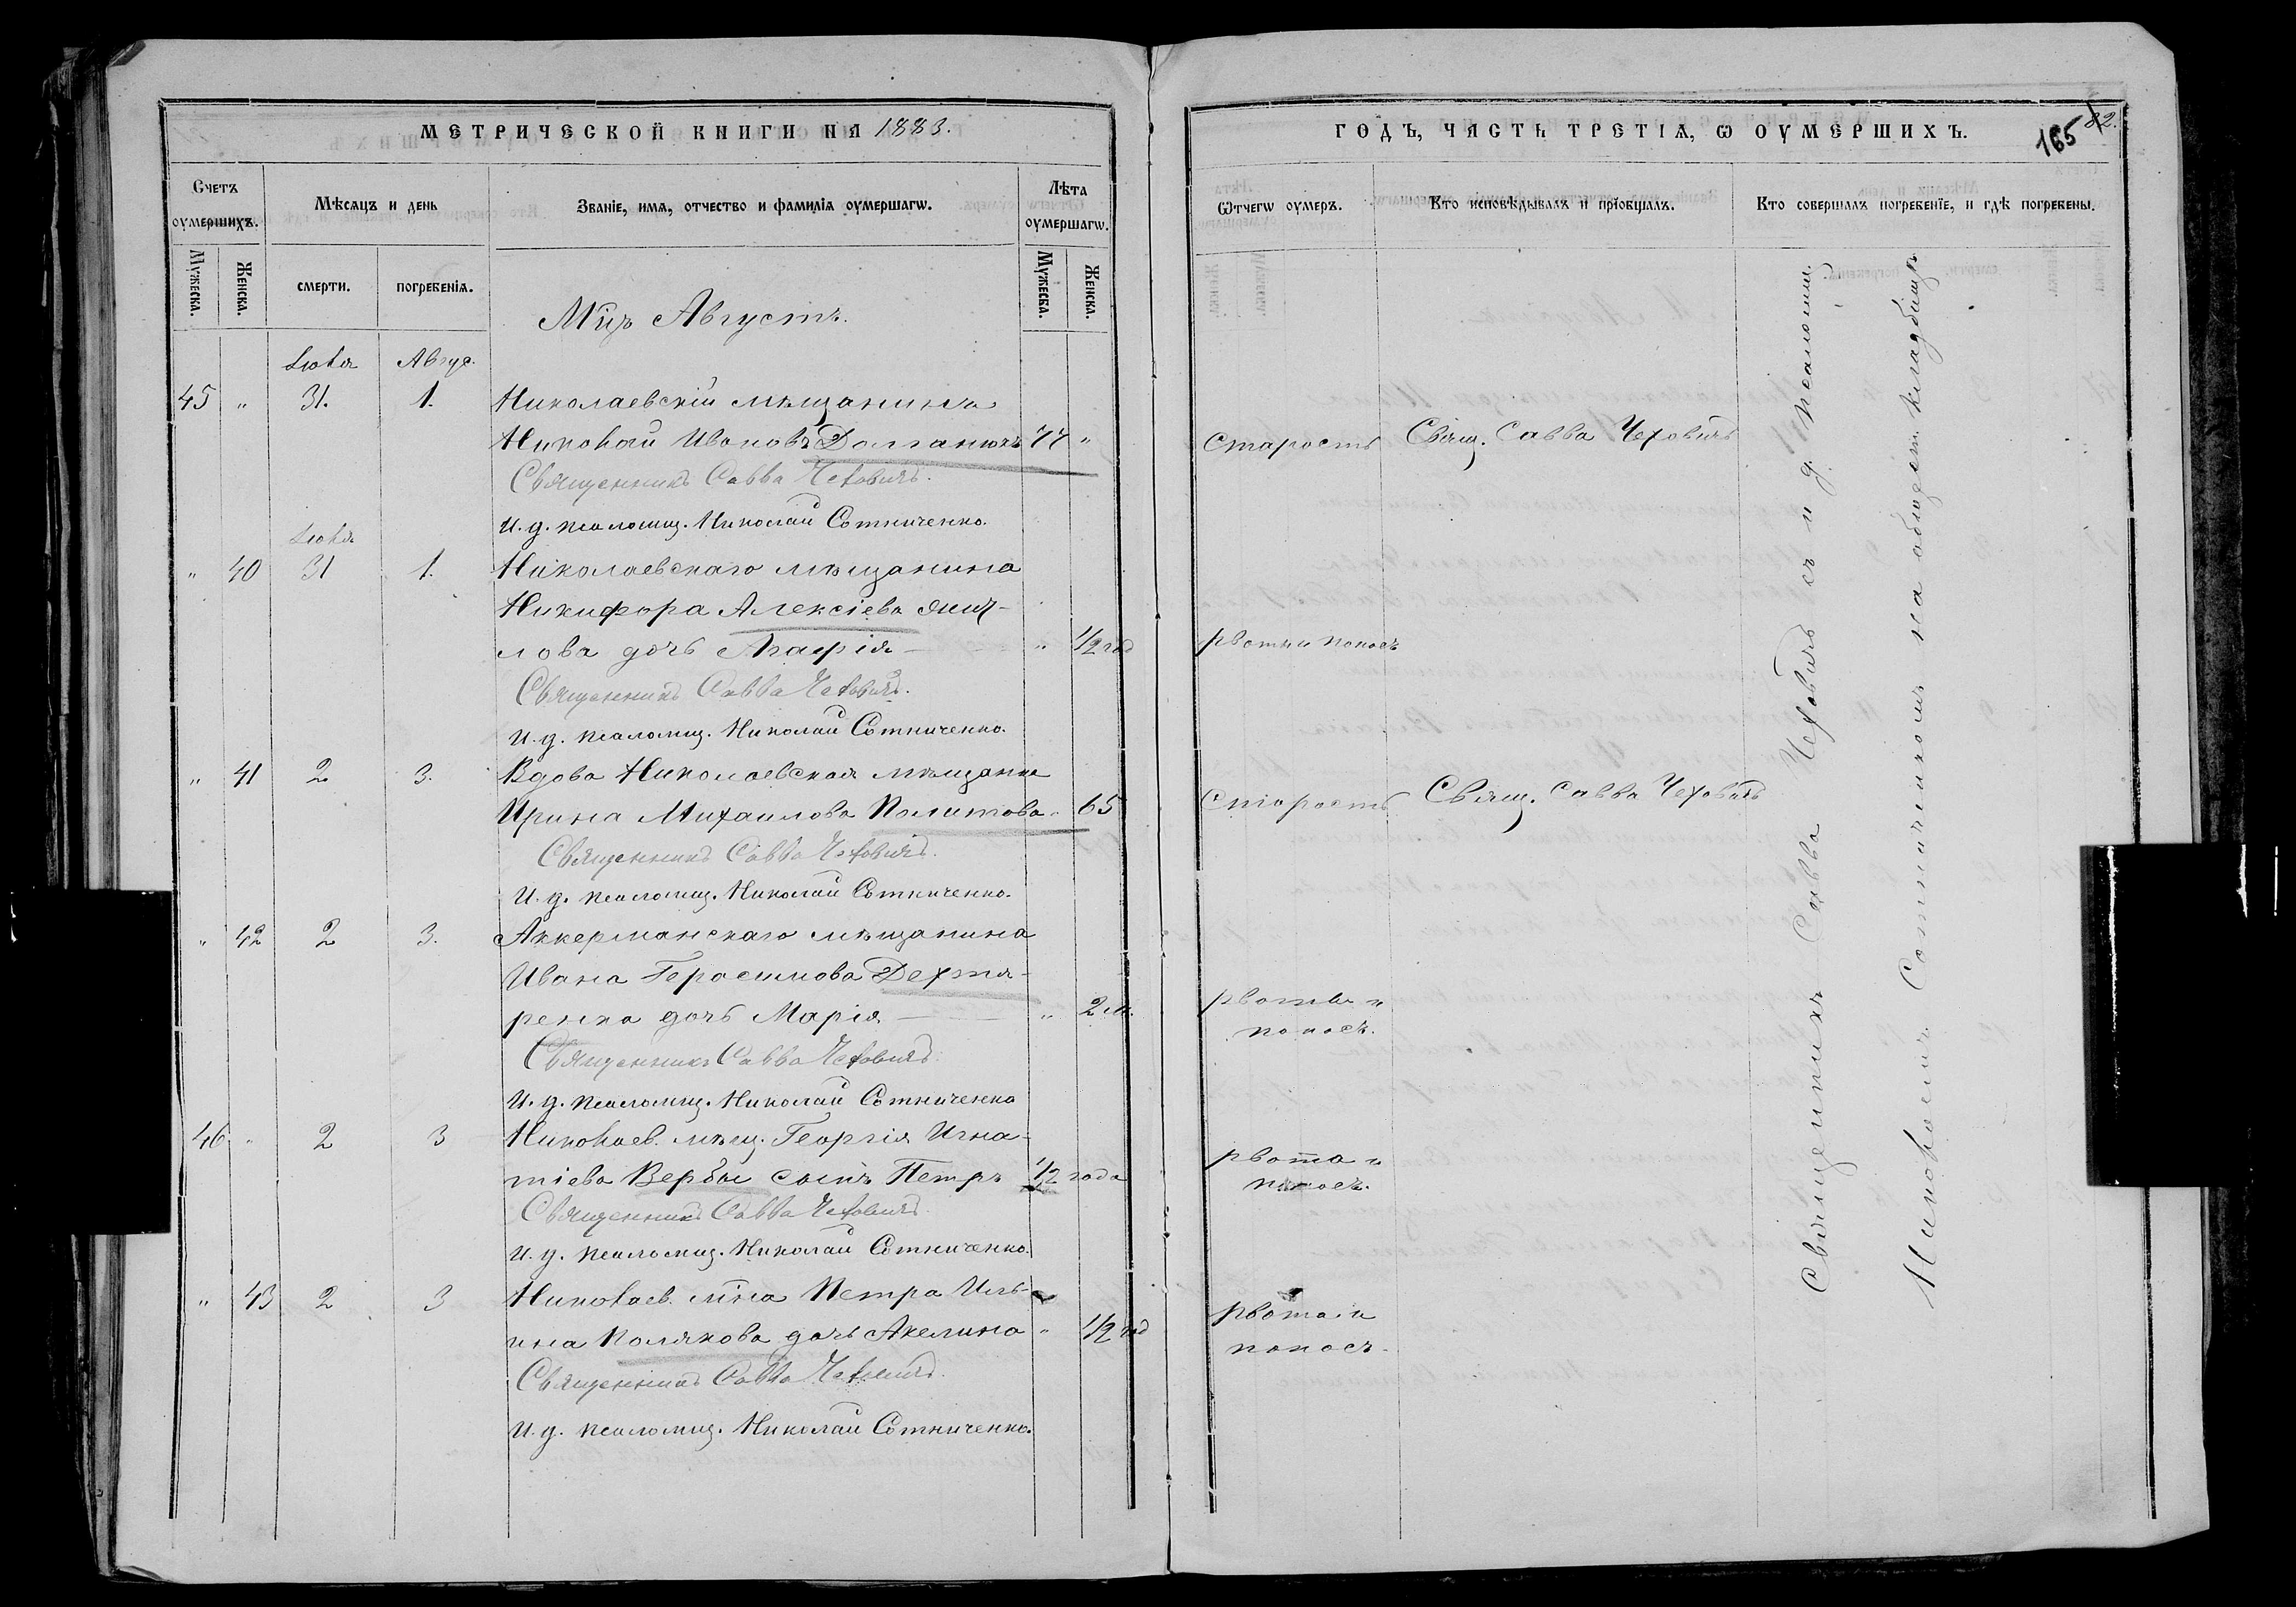 МЕТРИЧЕСКОЙ КНИГИ НА 1883.
Счетъ оумершихъ.
Мѣсяцъ и день
Званіе, имя, отчество и фамилія оумершагѡ.
Лѣта оумершагѡ.
Мужеска.
Женска.
смерти.
погребенія.
Мужеска.
Женска.
Мцъ Августъ.
Іюля Авгус.
45 " 31. 1. Николаевскій мѣщанинъ
Николай Ивановъ 77 "
Священникъ Савва Чеховичъ.
И. д. псаломщ. Николай Сотниченко.
Іюля
" 40 31 1. Николаевскаго мѣщанина
Никифора Алексіева
лова дочь Агафія " 1/2 год
Священникъ Савва Чеховичъ.
И. д. псаломщ. Николай Сотниченко.
" 41 2 3. Вдова Николаевская мѣщанка
Ирина Михаилова Политова " 65
Священникъ Савва Чеховичъ.
И. д. псаломщ. Николай Сотниченко.
" 42 2 3. Аккерманскаго мѣщанина
Ивана Герасимова Дехтя-
ренка дочь Марія " 2 м.
Священникъ Савва Чеховичъ.
И. д. псаломщ. Николай Сотниченко
46 " 2 3 Николаев. мѣщ. Георгія Игна-
тіева Вербы сынъ Петръ 1/2 года
Священникъ Савва Чеховичъ.
И. д. псаломщ. Николай Сотниченко.
" 43 2 3 Николаев. мѣщ. Петра Иль-
ина Полякова дочь Акелина " 1/2 год
Священникъ Савва Чеховичъ.
И. д. псаломщ. Николай Сотниченко.
ГОДЪ, ЧАСТЬ ТРЕТІЯ, Ѡ ОУМЕРШИХЪ.
165
82.
Ѿтчегѡ оумеръ.
Кто исповѣдывалъ и пріобщалъ.
Кто совершалъ погребеніе, и гдѣ погребены.
Старость Свящ. Савва Чеховичъ
рвота и поносъ
Старость Свящ. Савва Чеховичъ
рвота и
поносъ.
рвота и
поносъ.
Рвота и
поносъ.
Священникъ Савва Чеховичъ съ и. д. псаломщ.
Николаемъ Сотниченкомъ на общест. кладбищѣ